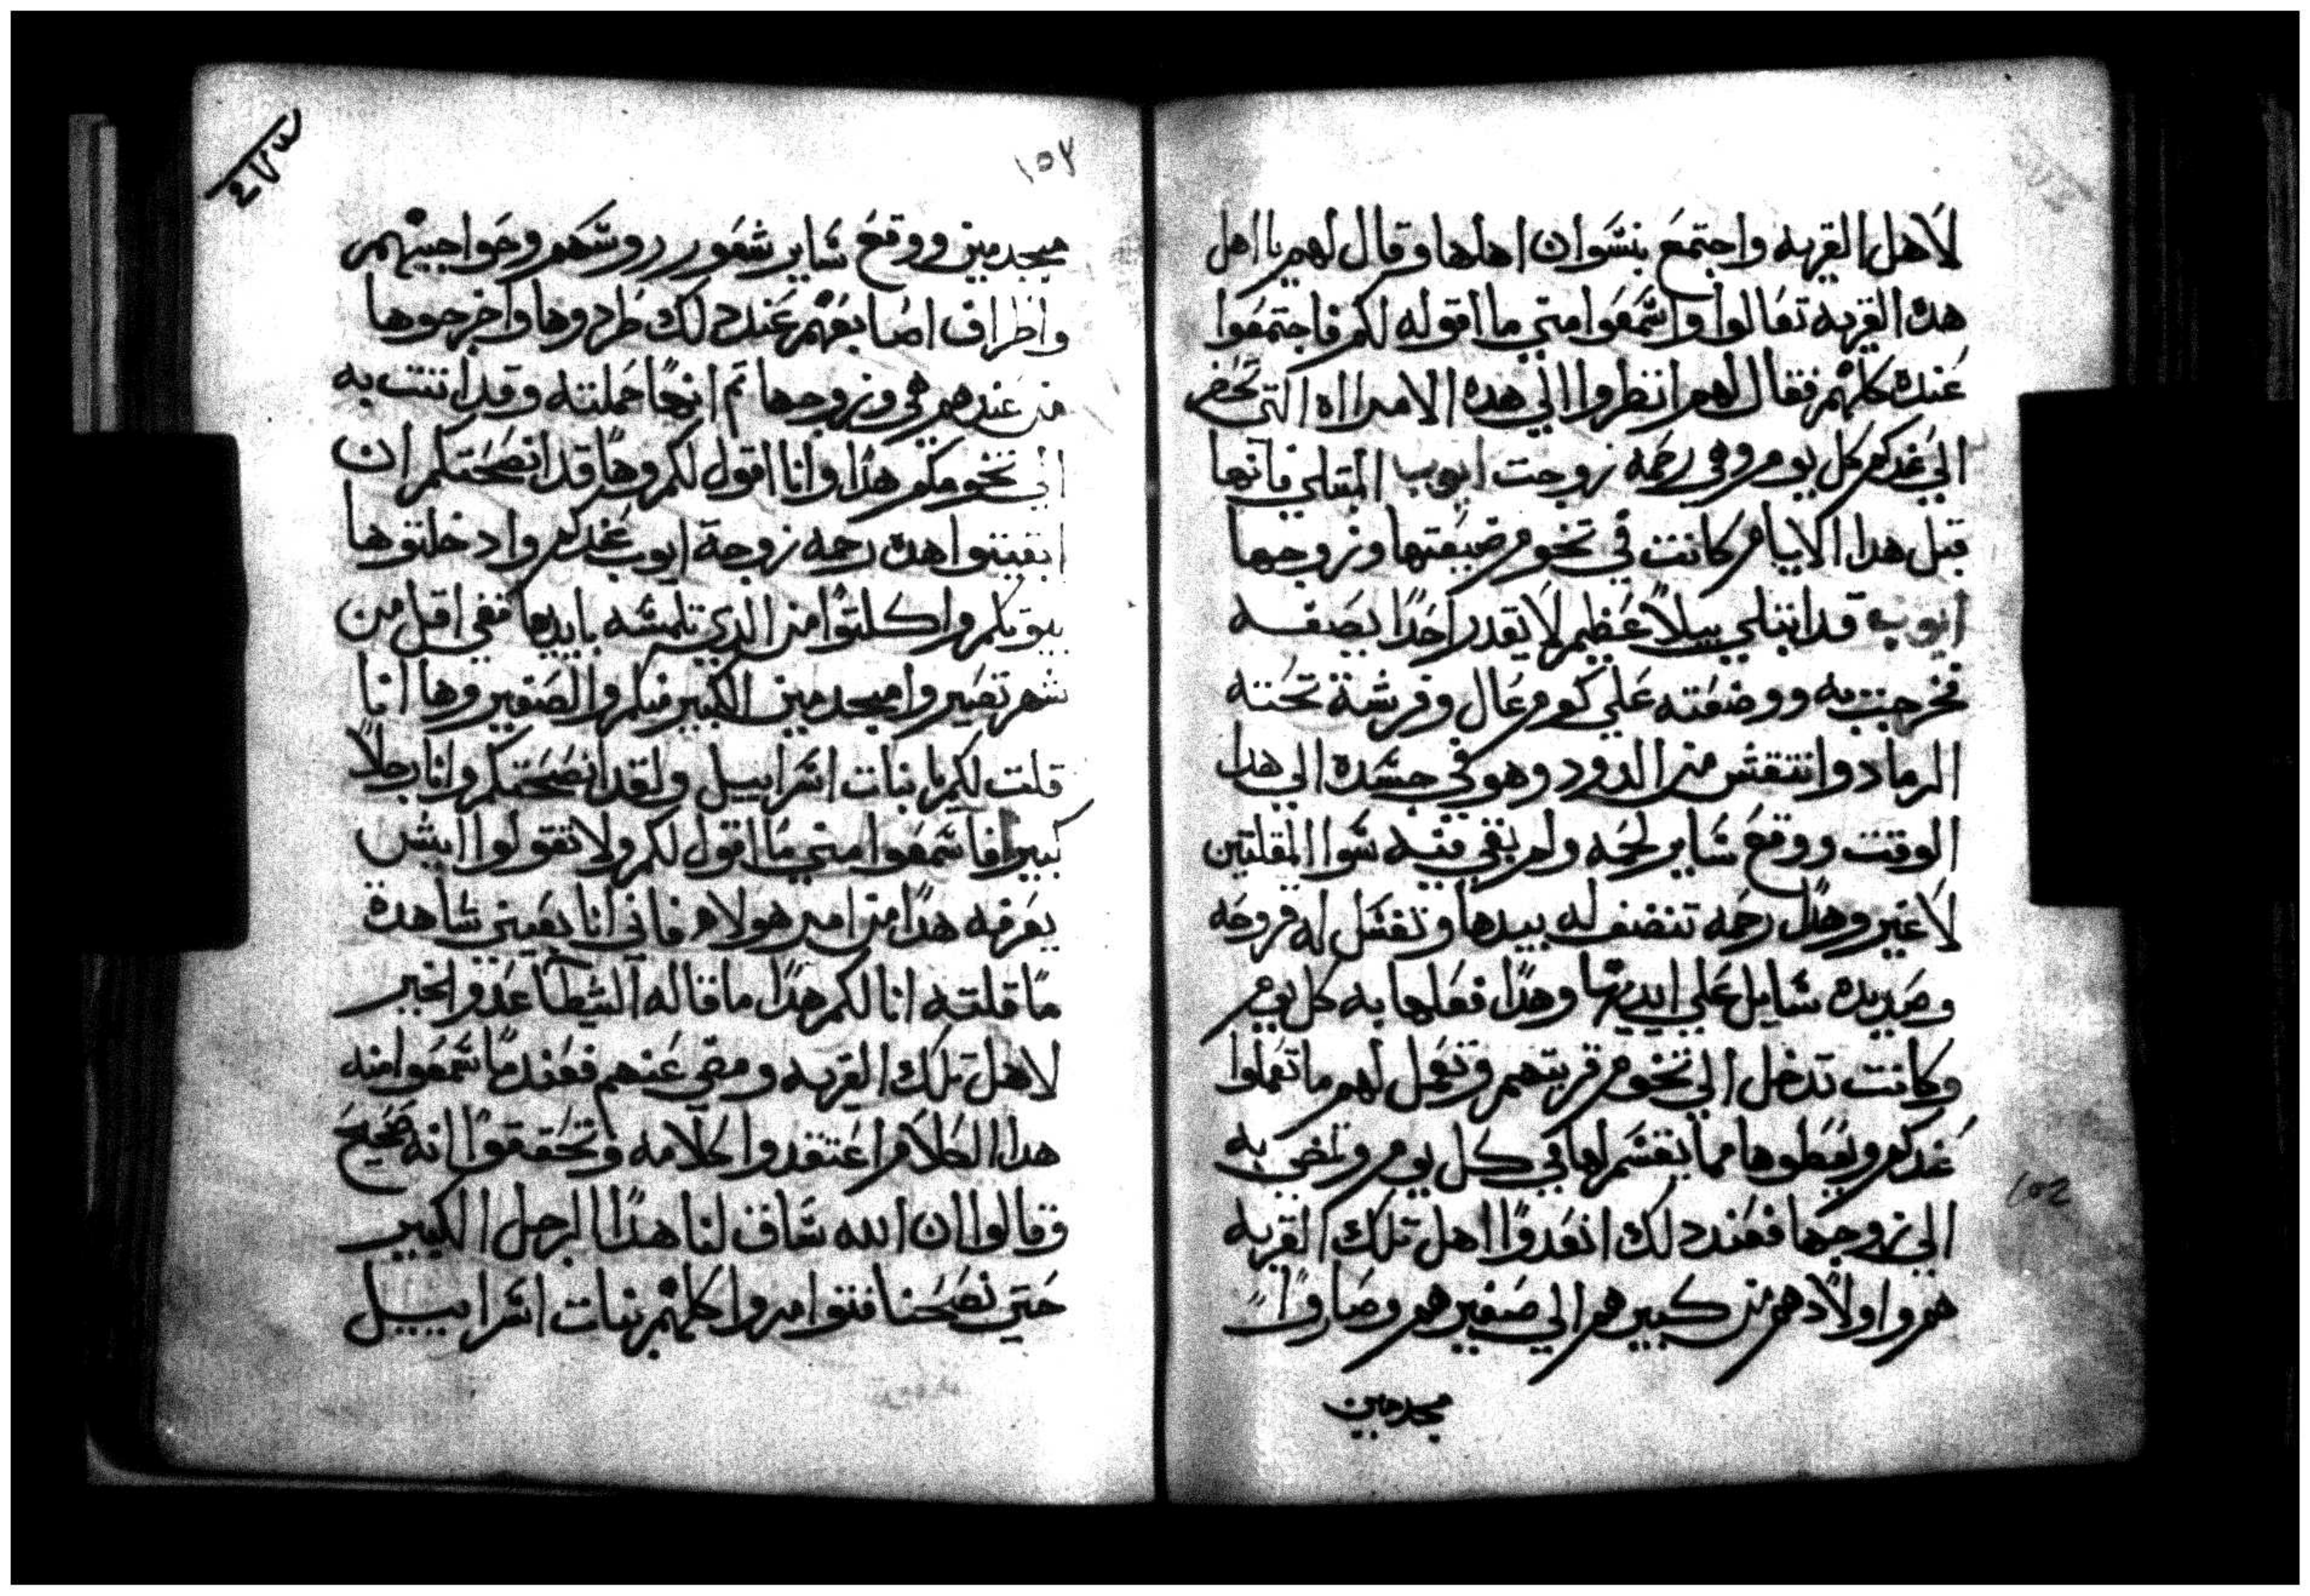 لاهل القريه واجتمع بنسوان اهلها وقال لهم يا اهل
هده القريه تعالوا واسمعوا مني ما اقوله لكم فاجتمعوا
عنده كلهم فقال لهم انظروا الي هده الامراه التي تحضر
الي عندكم كل يوم وهي رحمه زوجت ايوب المبتلي فانها
قبل هدا الايام كانت في تخوم ضيعتها وزوجها
ايوب قد ابتلي ببلاً عظيم لا يقدر احدًا يصفه
فخرجت به ووضعته علي كوم عال وفرشة تحته
الرماد وانتقش من الدود وهو في جسده الي هدا
الوقت ووقع ساير لحمه ولم بقي فيه سوا المقلتين
لا غير وهدا رحمه تنضف له بيدها وتغسل له قروحه
وصديده سايل علي ايديها وهدا فعلها به كل يوم
وكانت تدخل الي تخوم قريتهم وتعمل لهم ما تعملوا
عندكم ويعطوها مما يقسم لها في كل يوم وتمضي به
الي زوجها فعند دلك انعدوا اهل تلك القريه
هم واولادهم من كبيرهم الي صغيرهم وصاروا
مجدمين
١٥٢
٢٧٣
١٥٣
مجدمين ووقع ساير شعور روسهم وحواجبهم
واطراف اصابعهم عند دلك طردوها واخرجوها
من عندهم هي وزوجها تم انها حملته وقد اتت به
الي تخومكم هدا وانا اقول لكم وها قد انصحتكم ان
ابقيتوا هده رحمه زوجة ايوب عندكم وادخلتوها
بيوتكم واكلتوا من الدي تلمسه بايديها ففي اقل من
شهر تصيروا مجدمين الكبير منكم والصغير وها انا
قلت لكم يا بنات اسراييل ولقد انصحتكم وانا رجلاً
كبيرا فاسمعوا مني ما اقول لكم ولا تقولوا ايش
يعرفه هدا من امر هولاء فاني انا بعيني شاهدة
ما قلته انا لكم هدا ما قاله الشيطان عدو الخير
لاهل تلك القريه ومضي عنهم فعندما سمعوا منه
هدا الكلام اعتقدوا كلامه وتحققوا انه صحيح
وقالوا ان الله ساق لنا هدا الرجل الكبير
حتي نصحنا فتوامروا كلهم بنات اسراييل